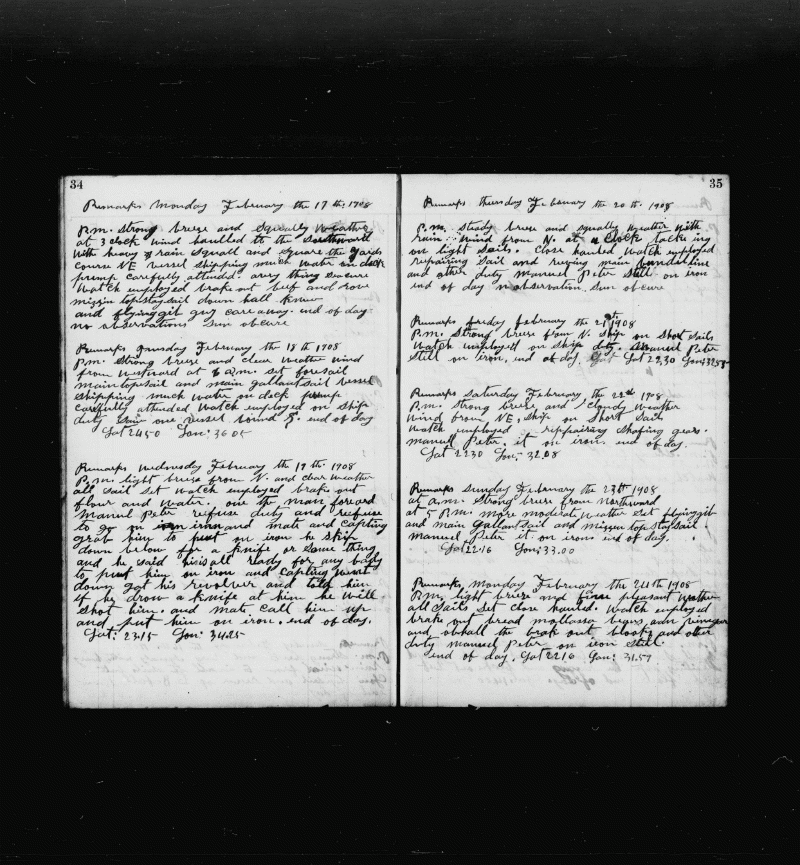 34
Remarks Monday February the 17th 1908
P.m. Strong breeze and Squally Weather
at 3 clock wind haulled to the Southward
With heavy rain Squall and Square the yards
course NE vessel shipping much water on deck
pump carefully attended. avry thing secure
Watch employed brake out beef and
mizzin topstaysail down hall
and flyinggib guy careaway. end of day
no observations Sun obcure
Remarks February the 18th 1908
P.m. Strong breeze and clear weather wind
from Westward at 6 a.m. set foresail
maintopsail and main gallantsail vessel
shipping much water on deck pump
carefully attended Watch employed on ship
duty one vessel bound end of day
Lat 24.50 Lon: 36.05
Remarks Wednesday February the 19th 1908
P.m. light breese from N. and clear weather
all sail set watch employed brake out
flour and water. one the man forword
Manuel Peter refuse duty and refuse
to go in iron and mate and capting
grab him to put on iron he skip
down below for a knife or some thing
and he said his all ready for any body
to put him on iron and capting went
down got his revolver and told him
if he drow a knife at him he will
shot him. and mate call him up
and put him on iron. end of day.
Lat: 23.15 Lon: 34.25
35
Remarks Thursday February the 20th 1908
P.m. Steady breeze and squally weather with
rain. Wind from N. at clock tacking
on light sails. close hauled Watch employed
repairing sail and reving main
and other duty manuel Peter still on iron
end of day no observation. Sun obcure
Remarks friday february the 21th 1908
P.m. Strong breese from N. Ship on Short sails
Watch employed on ship duty. Manuel Peter
still on iron. end of day. Lat 22.30 Lon: 32.58
Remarks Saturday February the 22nd 1908
P.m. Strong breese and cloudy weather
wind from NE. ship on Short sail
Watch employed repairing Shafing gear.
manuel Peter. it on iron. end of day.
Lat 22.30 Lon: 32.08
Remarks Sunday February the 23th 1908
at a.m. Strong breese from Northward
at 5 P.m. more moderate weather Set flyinggib
and main Gallantsail and mizzin topstaysail
manuel Peter it on irons end of day.
Lat 22.16 Lon: 33.00
Remarks, Monday February the 24th 1908
P.m. light breese and fine pleasant weather
all sails set close hauled. Watch employed
brake out bread mollassa beans and vineger
and the brake out, and other
duty manuel Peter on iron still.
end of day. Lat 22.16 Lon: 31.57